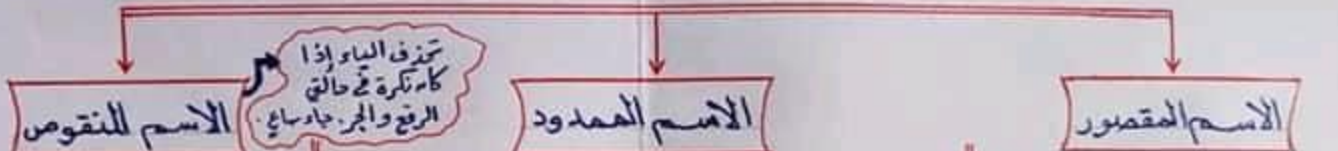 الاسم المقصور
الاسم الممدود
تحذف الياء إذا
كان نكرة في حالتي
الرفع والجر. جاء ساعٍ.
الاسم المنقوص